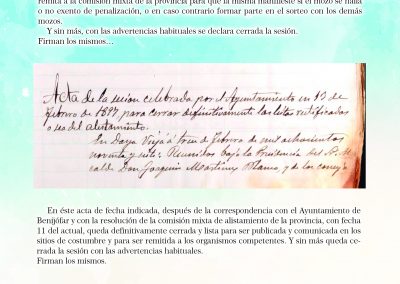 remita a la comisión mixta de la provincia para que la misma manifieste si el mozo se halla
o no exento de penalización, o en caso contrario formar parte en el sorteo con los demás
mozos.
Y sin más, con las advertencias habituales se declara cerrada la sesión.
Firman los mismos…
Acta de la sesion celebrada por el Ayuntamiento en 13 de
febrero de 1897, para cerrar definitivamente las listas rectificadas
o sea del alistamiento.
En Daya Vieja á trece de Febrero de mil ochocientos
noventa y siete: Reunidos bajo la Presidencia del Sr. Al
calde Don Joaquin Martinez Blanco, y de los conceja
En éste acta de fecha indicada, después de la correspondencia con el Ayuntamiento de
Benijófar y con la resolución de la comisión mixta de alistamiento de la provincia, con fecha
11 del actual, queda definitivamente cerrada y lista para ser publicada y comunicada en los
sitios de costumbre y para ser remitida a los organismos competentes. Y sin más queda ce-
rrada la sesión con las advertencias habituales.
Firman los mismos.